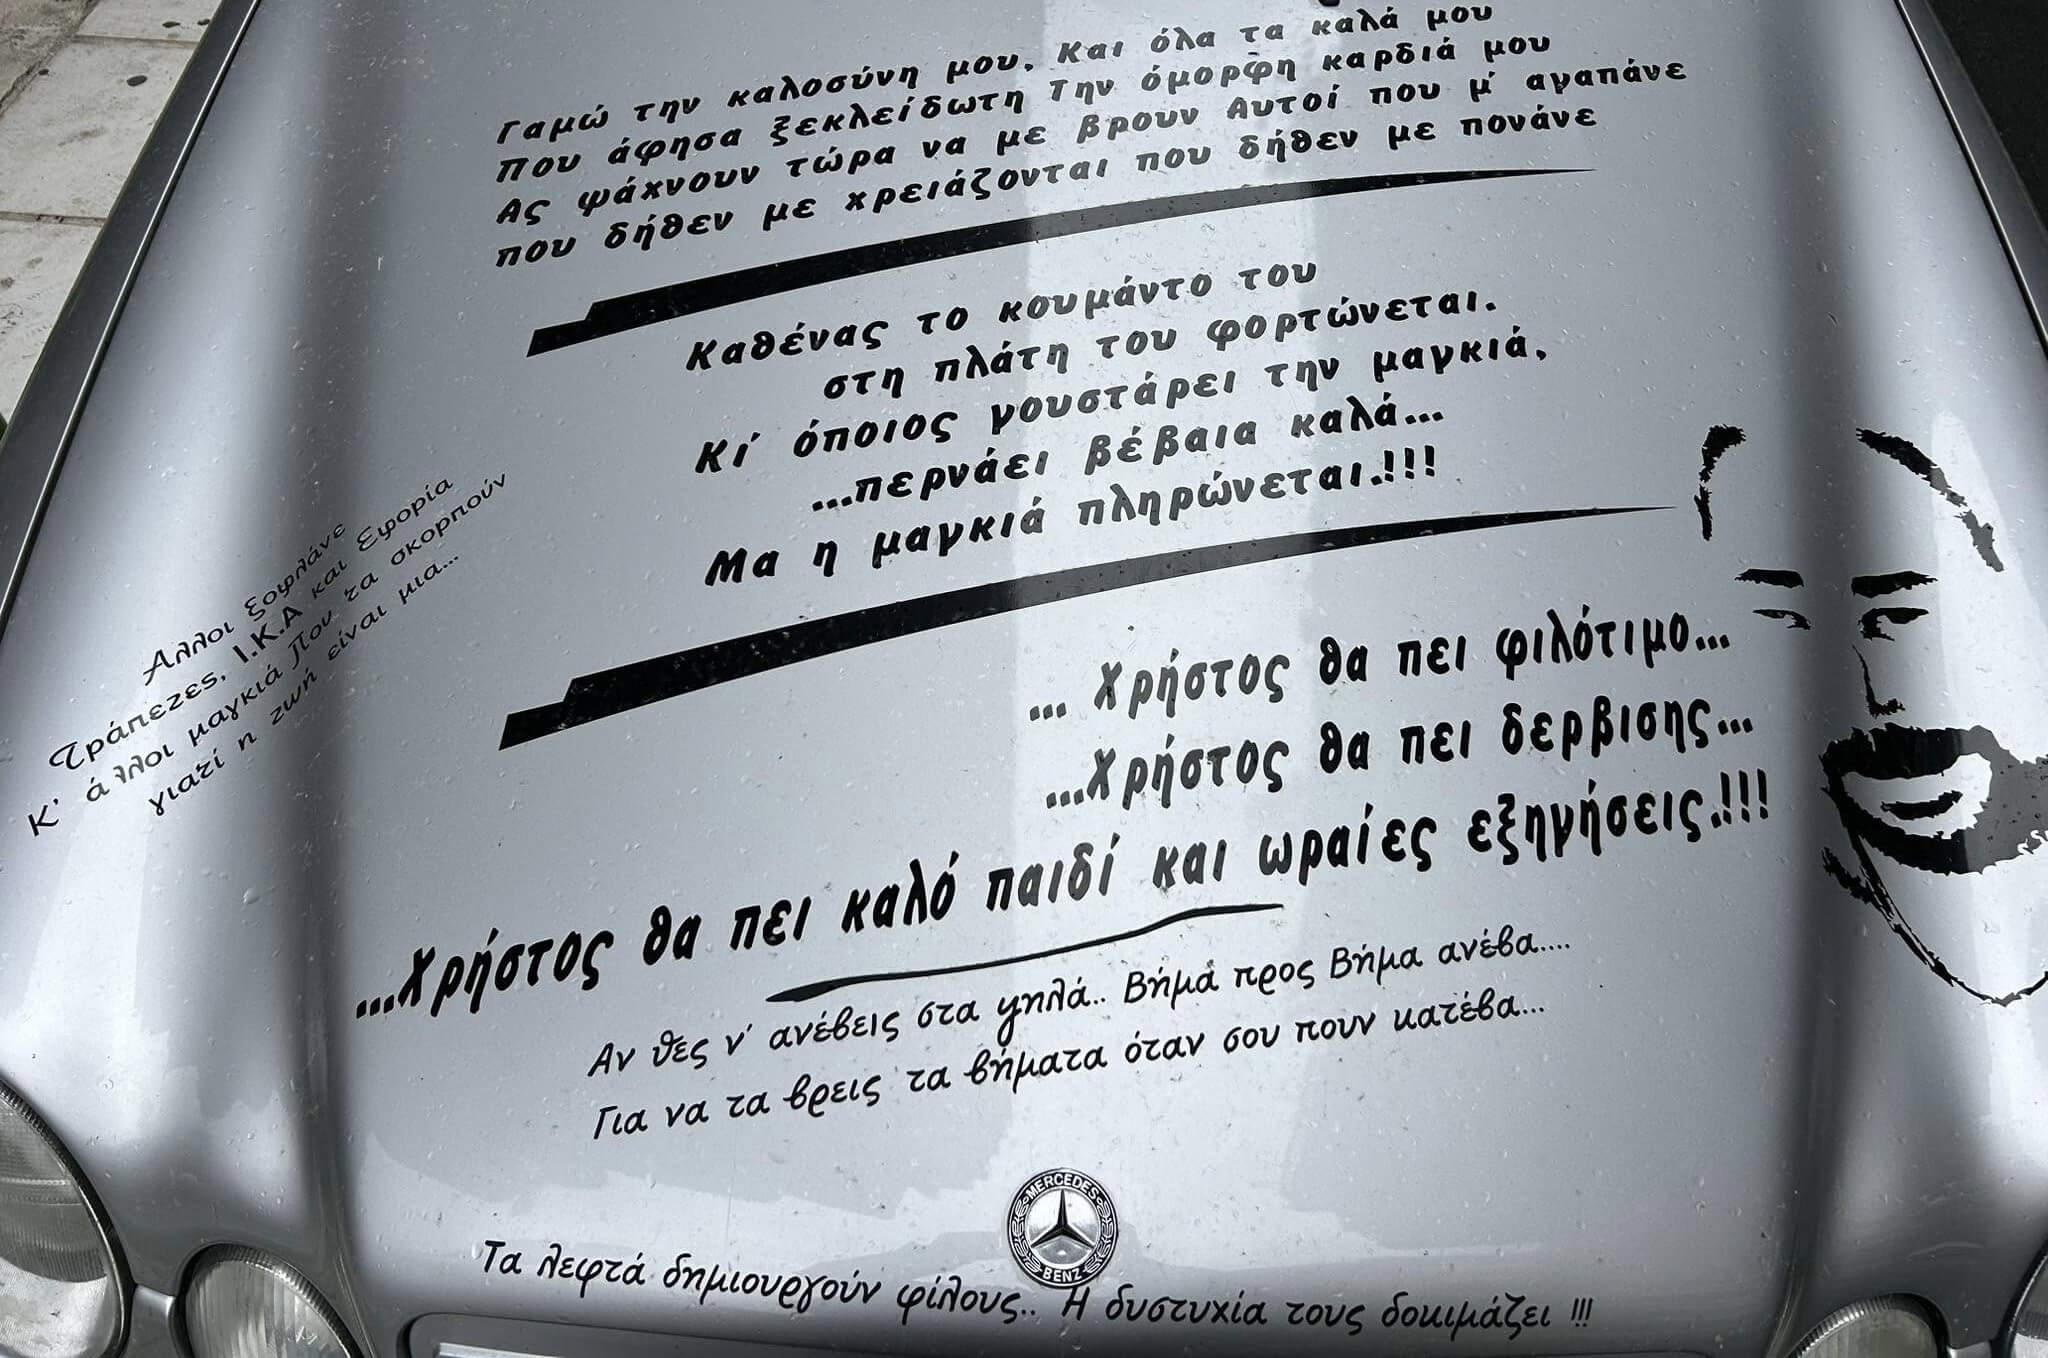 Γαμώ την καλοσύνη μου. Και όλα τα καλά μου
Που άφησα ξεκλείδωτη Την όμορφη καρδιά μου
Ας ψάχνουν τώρα να με βρουν Αυτοί που μ' αγαπάνε
που δήθεν με χρειάζονται που δήθεν με πονάνε
Καθένας το κουμάντο του
στη πλάτη του φορτώνεται.
Κι' όποιος γουστάρει την μαγκιά,
...περνάει βέβαια καλά...
Μα η μαγκιά πληρώνεται.!!!
Άλλοι ξοφλάνε
Τράπεzες, Ι.Κ.Α και Εφορία
Κ' άλλοι μαγκιά Που τα σκορπούν
γιατί η zωή είναι μια...
... Χρήστος θα πει φιλότιμο...
...Χρήστος θα πει δερβισης...
...Χρήστος θα πει καλό παιδί και ωραίες εξηγήσεις.!!!
Αν θες ν' ανέβεις στα ψηλά.. Βήμα προς Βήμα ανέβα....
Για να τα βρεις τα βήματα όταν σου πουν κατέβα...
MERCEDES
BENZ
Τα λεφτά δημιουργούν φίλους.. Η δυστυχία τους δοκιμάζει !!!